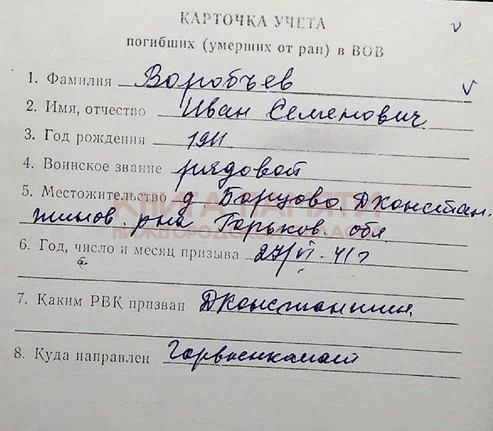 КАРТОЧКА УЧЕТА
погибших (умерших от ран) в ВОВ
1. Фамилия Воробъев
2. Имя, отчество Иван Семенович
3. Год рождения 1911
4. Воинское звание рядовой
5. Местожительство д. Борцово ДКонстан.
тинов рна Горьков обл
КНИГА ПАМЯТИ
6. Год, число и месяц призыва 27/VI. 41 г
7. Каким РВК призван ДКонстантин.
8. Куда направлен Горвоенкомат